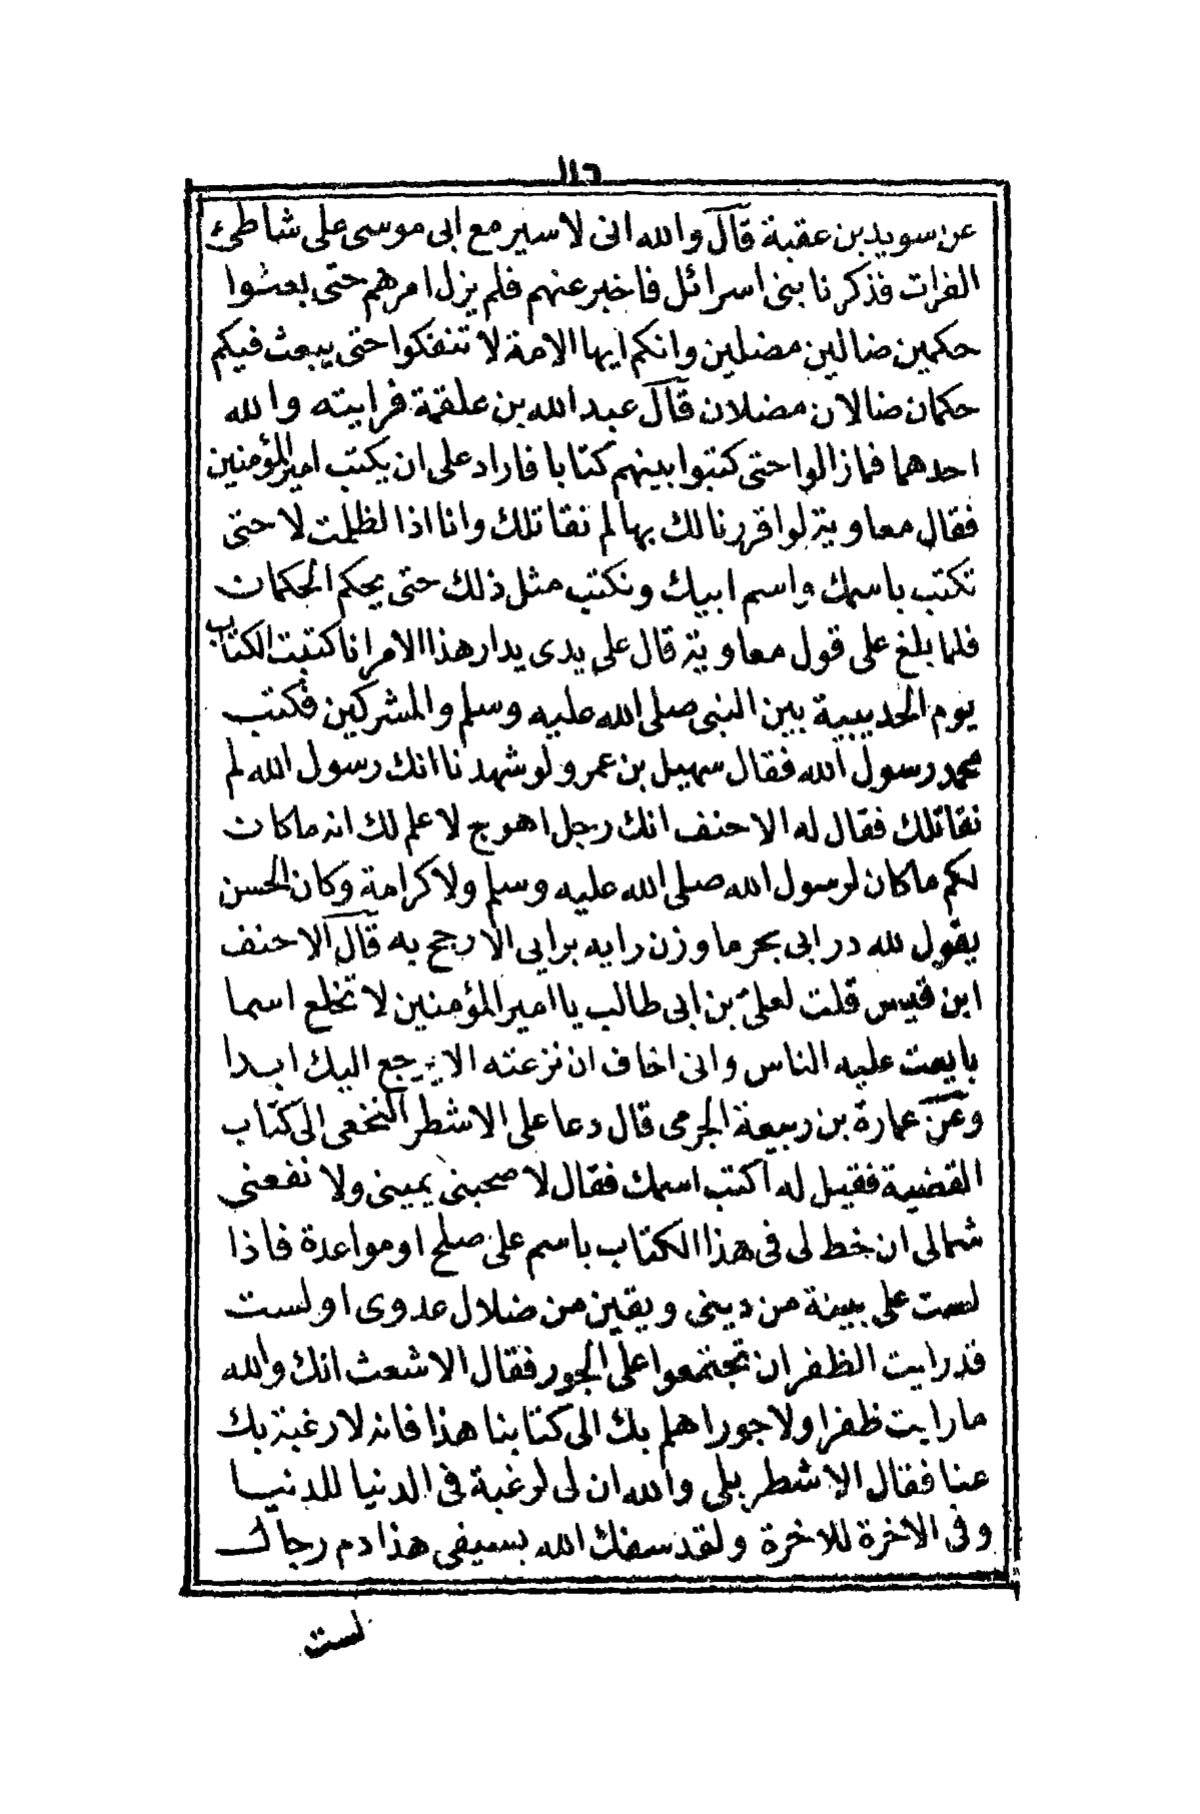 ١١٦
عن سويد بن عقبة قال والله انى لاسير مع ابى موسى على شاطئ
الفرات فذكرنا بنى اسرائل فاخبر عنهم فلم يزل امرهم حتى بعثوا
حكمين ضالين مضلين وانكم ايها الامة لا تنفكوا حتى يبعث فيكم
حكمان ضالان مضلان قال عبد الله بن علقمة فرايته والله
احدهما فمازالوا حتى كتبوا بينهم كتابا فاراد على ان يكتب امير المؤمنين
فقال معاوية لو اقررنا لك بها لم نقاتلك وانا اذا لظلمت لا حتى
تكتب باسمك واسم ابيك ونكتب مثل ذلك حتى يحكم الحكمان
فلما بلغ على قول معاوية قال على يدى يدار هذا الامر انا كتبت الكتاب
يوم الحديبية بين النبى صلى الله عليه وسلم والمشركين فكتب
محمد رسول الله فقال سهيل بن عمرو لو شهدنا انك رسول الله لم
نقاتلك فقال له الاحنف انك رجل اهوج لا علم لك انه ما كان
لكم ما كان لرسول الله صلى الله عليه وسلم ولا كرامة وكان الحسن
يقول لله در ابى بحر ما وزن رايه براى الا رجح به قال الاحنف
ابن قيس قلت لعلى بن ابى طالب يا امير المؤمنين لا تخلع اسما
بايعت عليه الناس وانى اخاف ان نزعته الا يرجع اليك ابدا
وعن عمارة بن ربيعة الجرمى قال دعا على الاشطر النخعى الى كتاب
القضية فقيل له اكتب اسمك فقال لا صحبنى يمينى ولا نفعنى
شمالى ان خط لى فى هذا الكتاب باسم على صلح او مواعدة فاذا
لست على بينة من دينى ويقين من ضلال عدوى او لست
قد رايت الظفر ان تجتمعوا على الجور فقال الاشعث انك والله
ما رايت ظفرا ولا جورا هلم بك الى كتابنا هذا فانه لا رغبة بك
عنا فقال الاشطر بلى والله ان لى لرغبة فى الدنيا للدنيا
وفى الاخرة للاخرة ولقد سفك الله بسيفى هذا دم رجال
لست